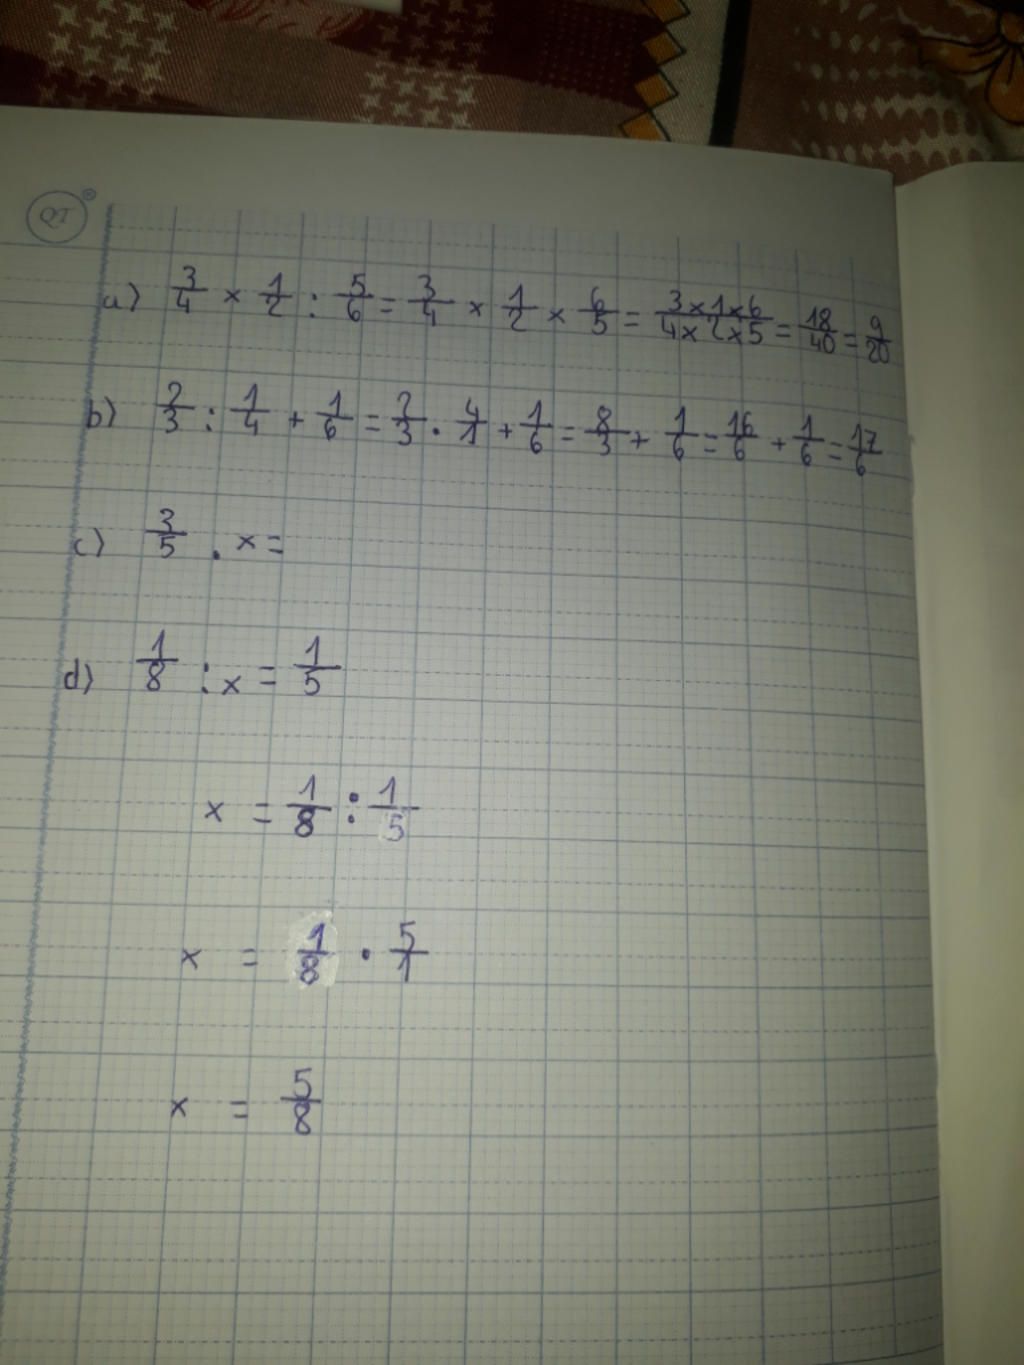 QT
a) 3/4 × 1/2 : 5/6 = 3/4 × 1/2 × 6/5 = 3×1×6/4×2×5 = 18/40 = 9/20
b) 2/3 : 1/4 + 1/6 = 2/3 . 4/1 + 1/6 = 8/3 + 1/6 = 16/6 + 1/6 = 17/6
c) 3/5 . x =
d) 1/8 : x = 1/5
x = 1/8 : 1/5
x = 1/8 . 5/1
x = 5/8